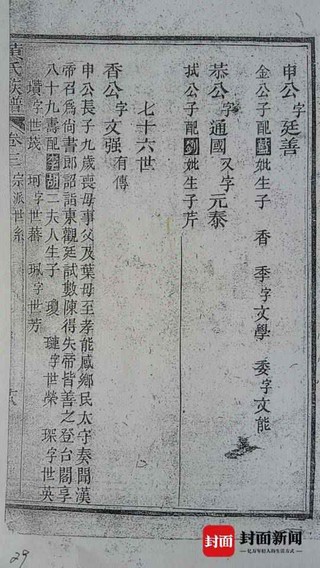 申公字廷善
金公子配藍妣生子 香 季字文學 委字文能
恭公字通國 又字元泰
拭公子配劉妣生子芹
七十六世
香公字文强 有傳
申公長子九歲喪母事父及葉母至孝能感鄉民太守奏聞漢
帝召爲尚書郎詔詣東觀廷試數陳得失帝皆善之登台閣享
八十九壽配李胡二夫人生子 瓊 璉字世榮 琛字世英
瓚字世 珂字世蕃 珮字世芳
氏族譜 卷三 宗派世系
29
封面 封面新闻
亿万年轻人的生活方式